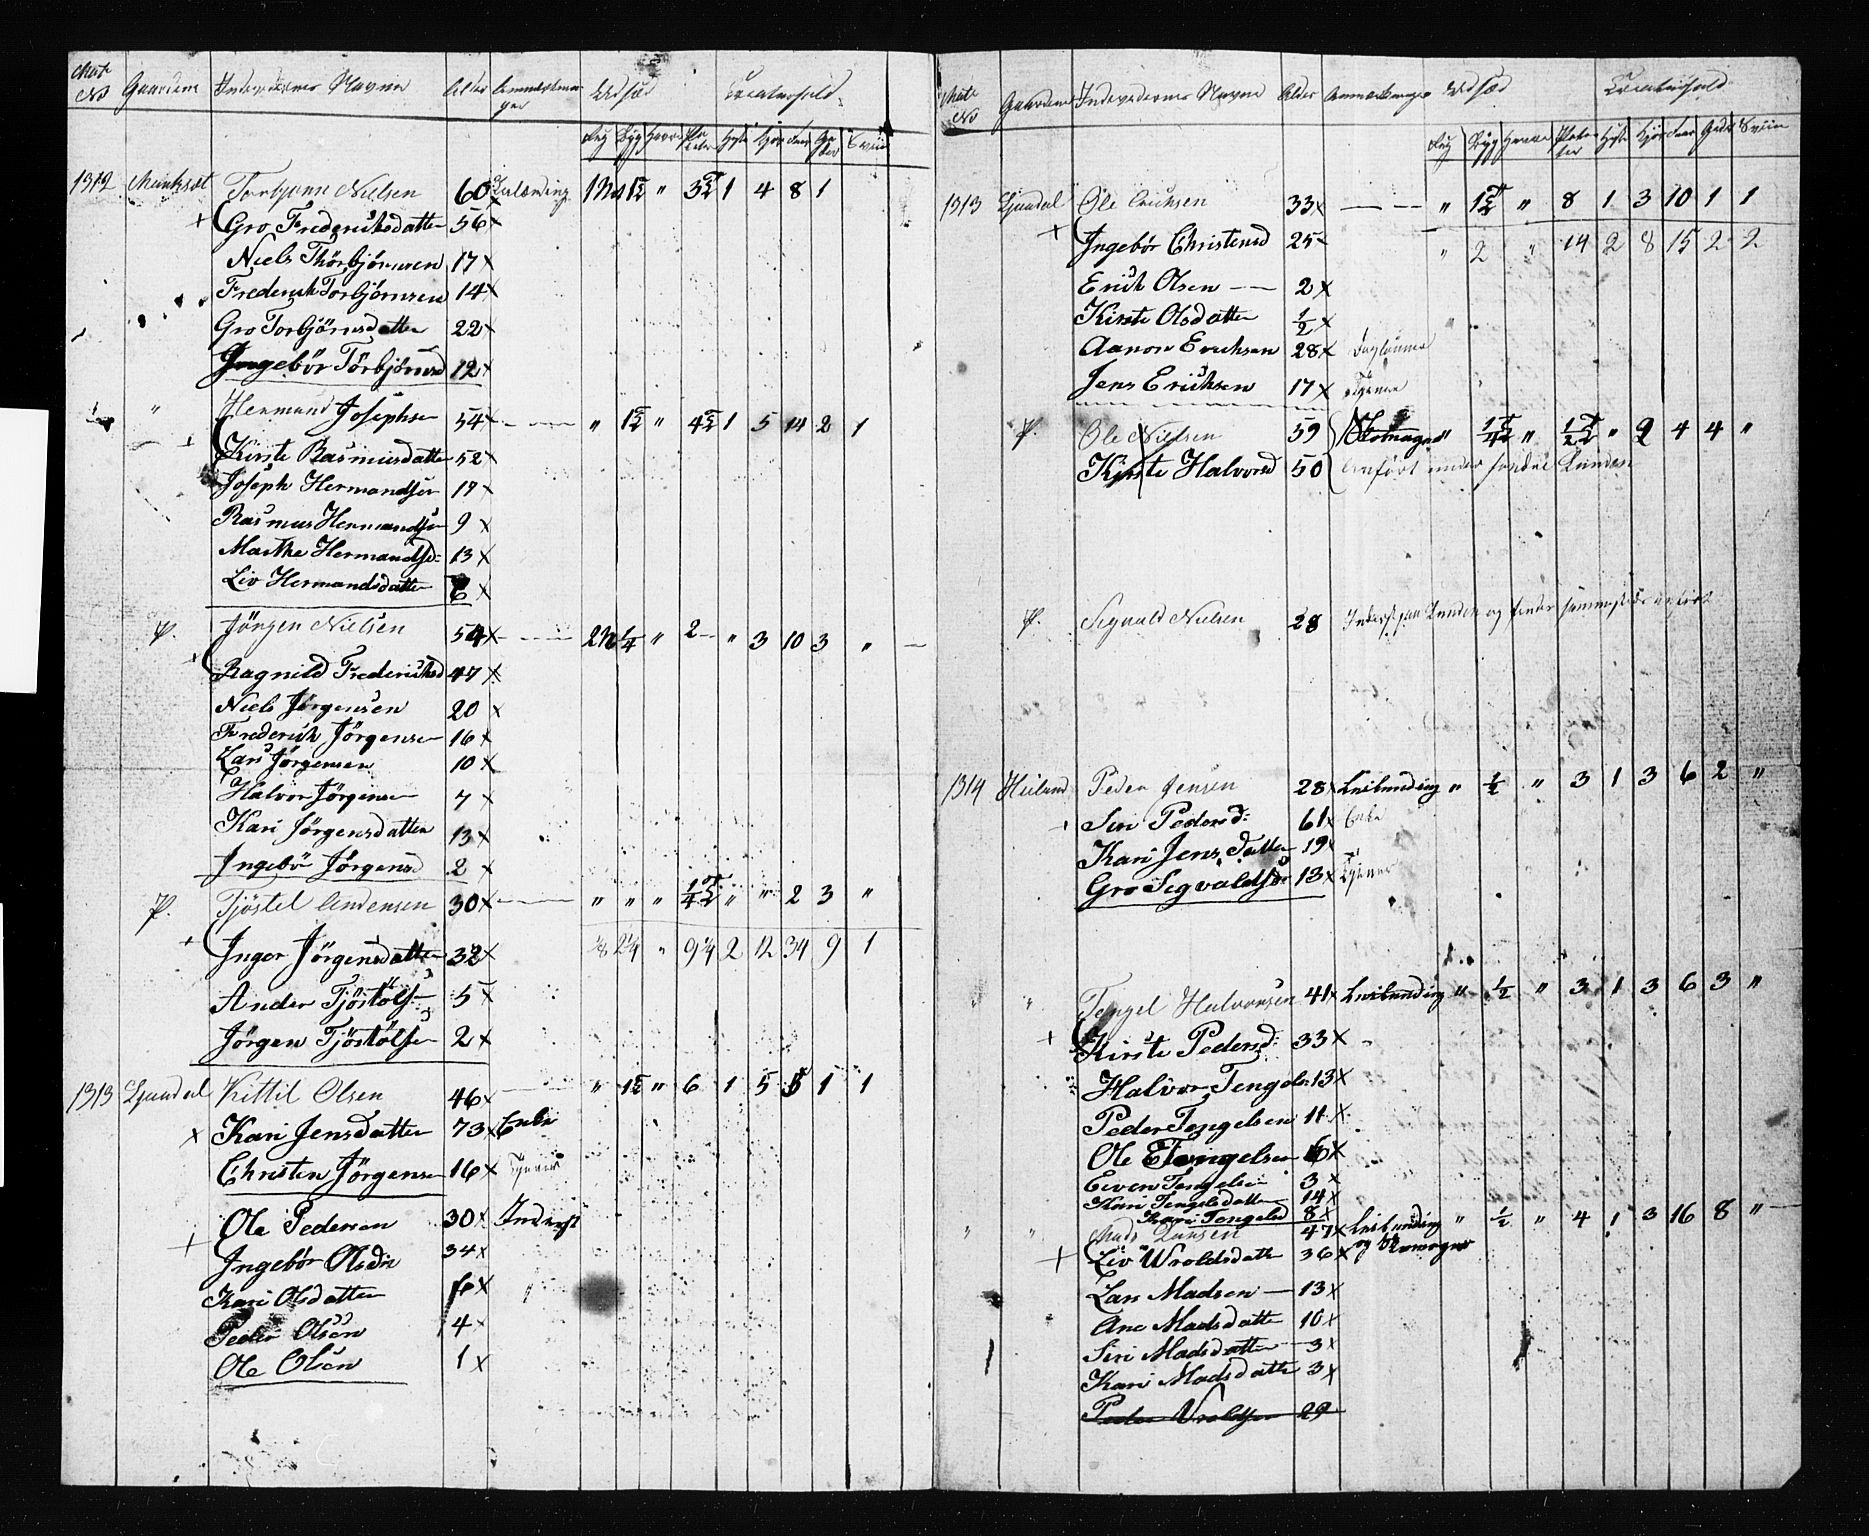 Matr No Gaardene Indevaanernes Navne Alder Anmærkninger Udsæd Creaturhold
Rug Byg Havre Poteter Heste Kjør Faar Geder Sviin
1312 Torbjønn Nielsen 60x 1 3/4 1 1/2 " 3 1/2 1 4 8 1
Gro Frederiksdatter 56x
Niels Thorbjørnsen 17x
Frederik Torbjørnsen 14x
Gro Torbjörnsdatter 22x
Ingebör Törbjörnsd 12x
" Hermand Josephsen 54x — " 1 1/2 " 4 1/2 1 5 14 2 1
Kirste Rasmusdatter 52x
Joseph Hermandsen 17x
Rasmus Hermandsen 9x
Marthe Hermandsd: 13x
Liv Hermandsdatter 6x
Jörgen Nielsen 54x — " 2 — " 3 10 3 " —
Ragnild Frederiksd 47x
Niels Jörgensen 20x
Frederik Jörgensen 16x
Lars Jörgensen 10x
Halvor Jörgensen 7x
Kari Jörgensdatter 13x
Ingebör Jörgensd 2x
Tjöstel Andersen 30x — " " " 1/4 " " 2 3 "
Inger Jörgensdatter 32x 1/8 2 1/4 " 9 1/4 2 12 34 9 1
Ander Tjöstölsen 5x
Jörgen Tjöstölsen 2x
1313 Ljundal Kittil Olsen 46x — " 1 1/2 " 6 1 5 5 1 1
x Kari Jensdatter 73x Enke
Christen Jörgensen 16x Tjener
Ole Pedersen 30x Inderst
+ Ingebör Olsdr 34x
Kari Olsdatter 6x
Peder Olsen 4x
Ole Olsen 1x
Matr No Gaardene Indevaanernes Navne Alder Anmærkninger Udsæd Creaturhold
Rug Byg Havre Poteter Heste Kjør Faar Geder Sviin
1313 Ljundal Ole Ericksen 33x — — " 1 1/2 " 8 1 3 10 1 1
+ Ingebör Christensd 25x " 2 " 14 2 8 15 2 2
Erich Olsen — 2x
Kirste Olsdatter 1/2x
Aanon Erichsen 28x
Jens Erichsen 17x Tjener
Ole Nielsen 59 " 1/4 " 1/2 " 2 4 4 "
Kirste Halvorsd 50 Anfört under
Sigvald Nielsen 28 og
1314 Heiland Peder Jensen 28x Leilænding " 1/2 " 3 1 3 6 2 "
+ Siri Pedersd: 61x Enke
Kari Jensdatter 19x
Gro Segvaldsdr 13x Tjener
" " Tengel Halvorsen 41x Leilænding " 1/2 " 3 1 3 6 3 "
+ Kirste Pedersd: 33x
Halvor Tengelsen 13x
Peder Tengelsen 11x
Ole Tengelsen 6x
Eiven Tengelsen 3x
Kari Tengelsdatter 14x
Kari Tengelsd 8x
" " Mads Larsen 47x Leilænding " 1/2 " 4 1 3 16 8 " —
+ Liv Wroldsdatter 36x og Skomager
Lars Madsen — 13x
Ane Madsdatter 10x
Siri Madsdatter 3x
Kari Madsdatter 3x
Peder Vroldsen 29